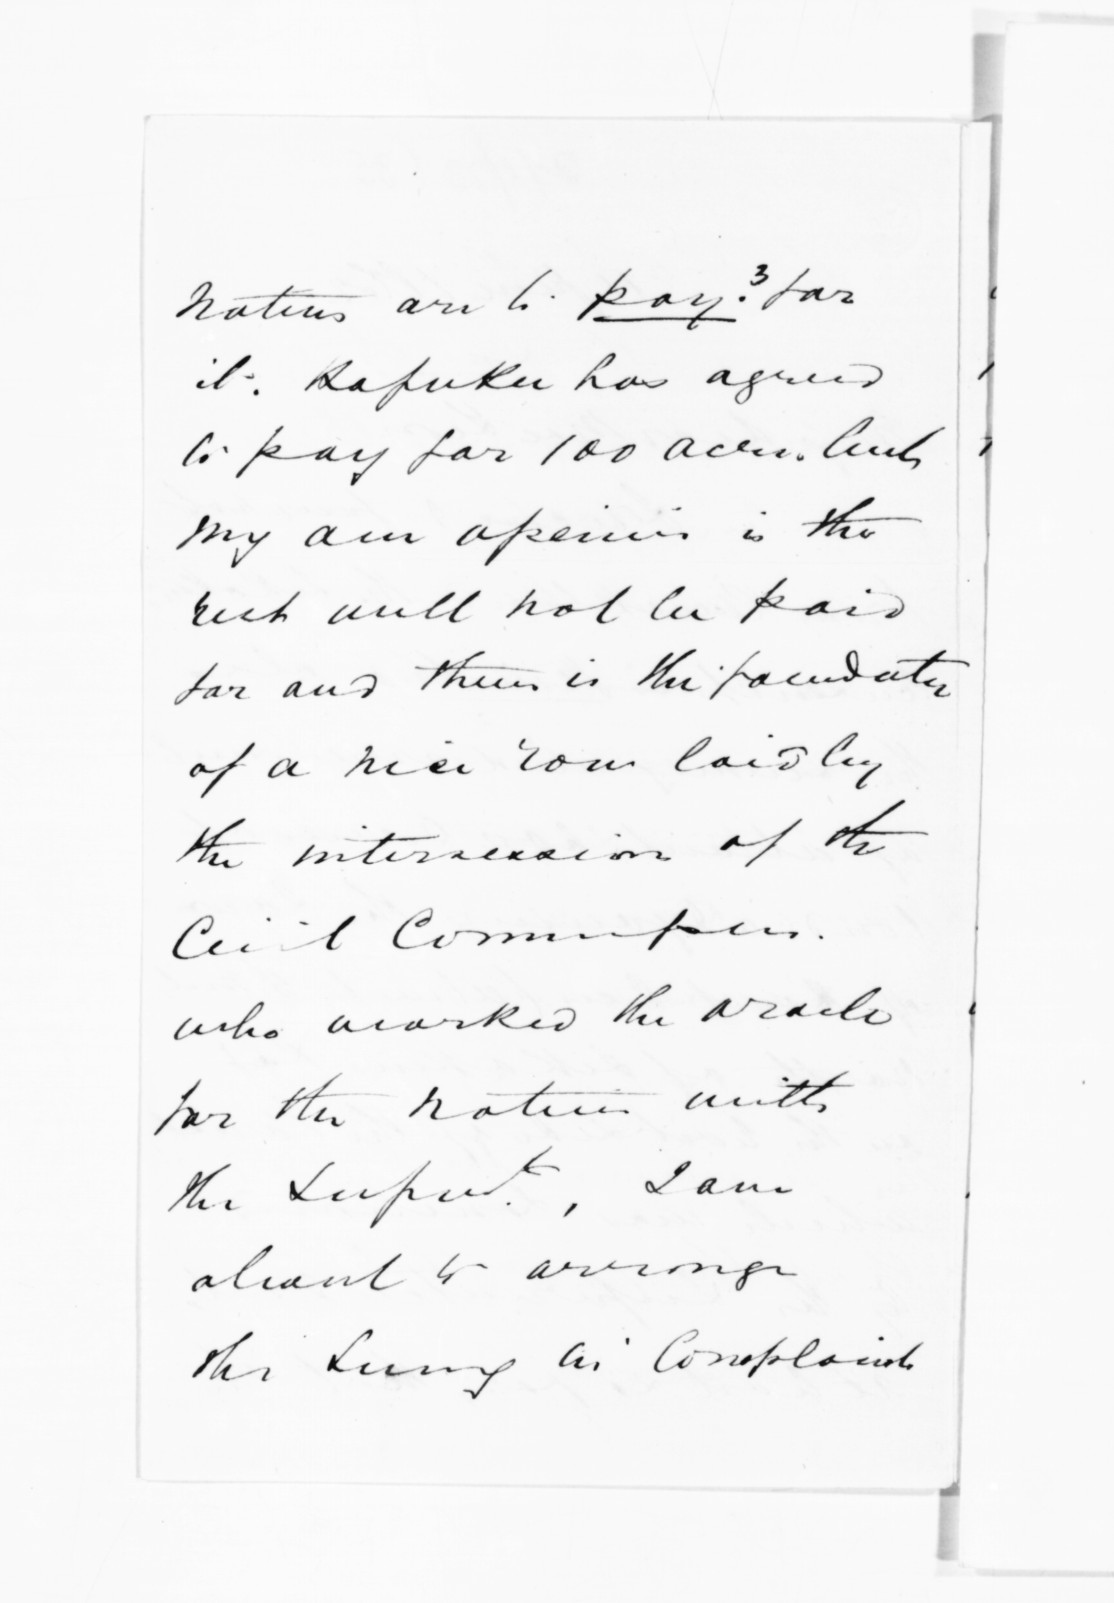 Natives are to pay.³ for
it. Kapuku has agreed
to pay for 100 acres. but
my own opinion is the
rest will not be paid
for and there is the foundation
of a nice row laid by
the intercession of the
Civil Commissr.
who worked the oracle
for the natives with
the Supndt., I am
about to arrange
the Survey in Complaint